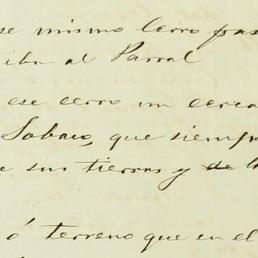 se mismo cerro pas
iba al Parral
ese cerro un cerca
Sobaco, que siempr
e sus tierras y de la
ó terreno que en el